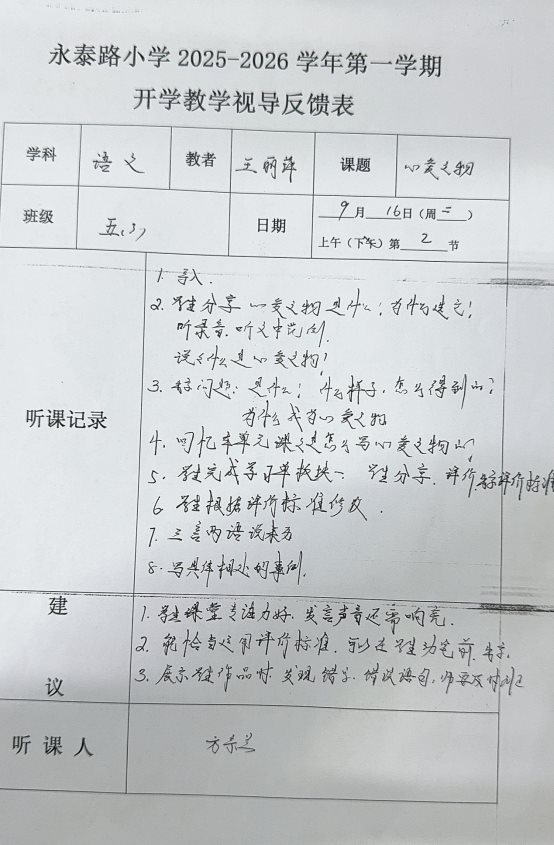 永泰路小学 2025-2026 学年第一学期
开学教学视导反馈表
学科 语文 教者 王丽萍 课题 心爱之物
班级 五(3) 日期 9月16日（周二）
上午（下午）第2节
听课记录
1. 导入.
2. 学生分享 心爱之物是什么；为什么选它；
听录音，听文中范例
说说什么是心爱之物；
3. 出示问题：是什么；什么样子，怎么得到的；
为什么成为心爱之物
4. 回忆本单元课文是怎么写心爱之物的
5. 学生完成学习单板块一 学生分享，评价，出示评价标准
6 学生根据评价标准修改.
7. 三言两语说来历
8. 写具体相处的事例.
建议
1. 学生课堂专注力好，发言声音还需响亮.
2. 能恰当运用评价标准，可以在学生动笔前出示.
3. 展示学生作品时，发现错字、错误语句，师要及时纠正
听课人